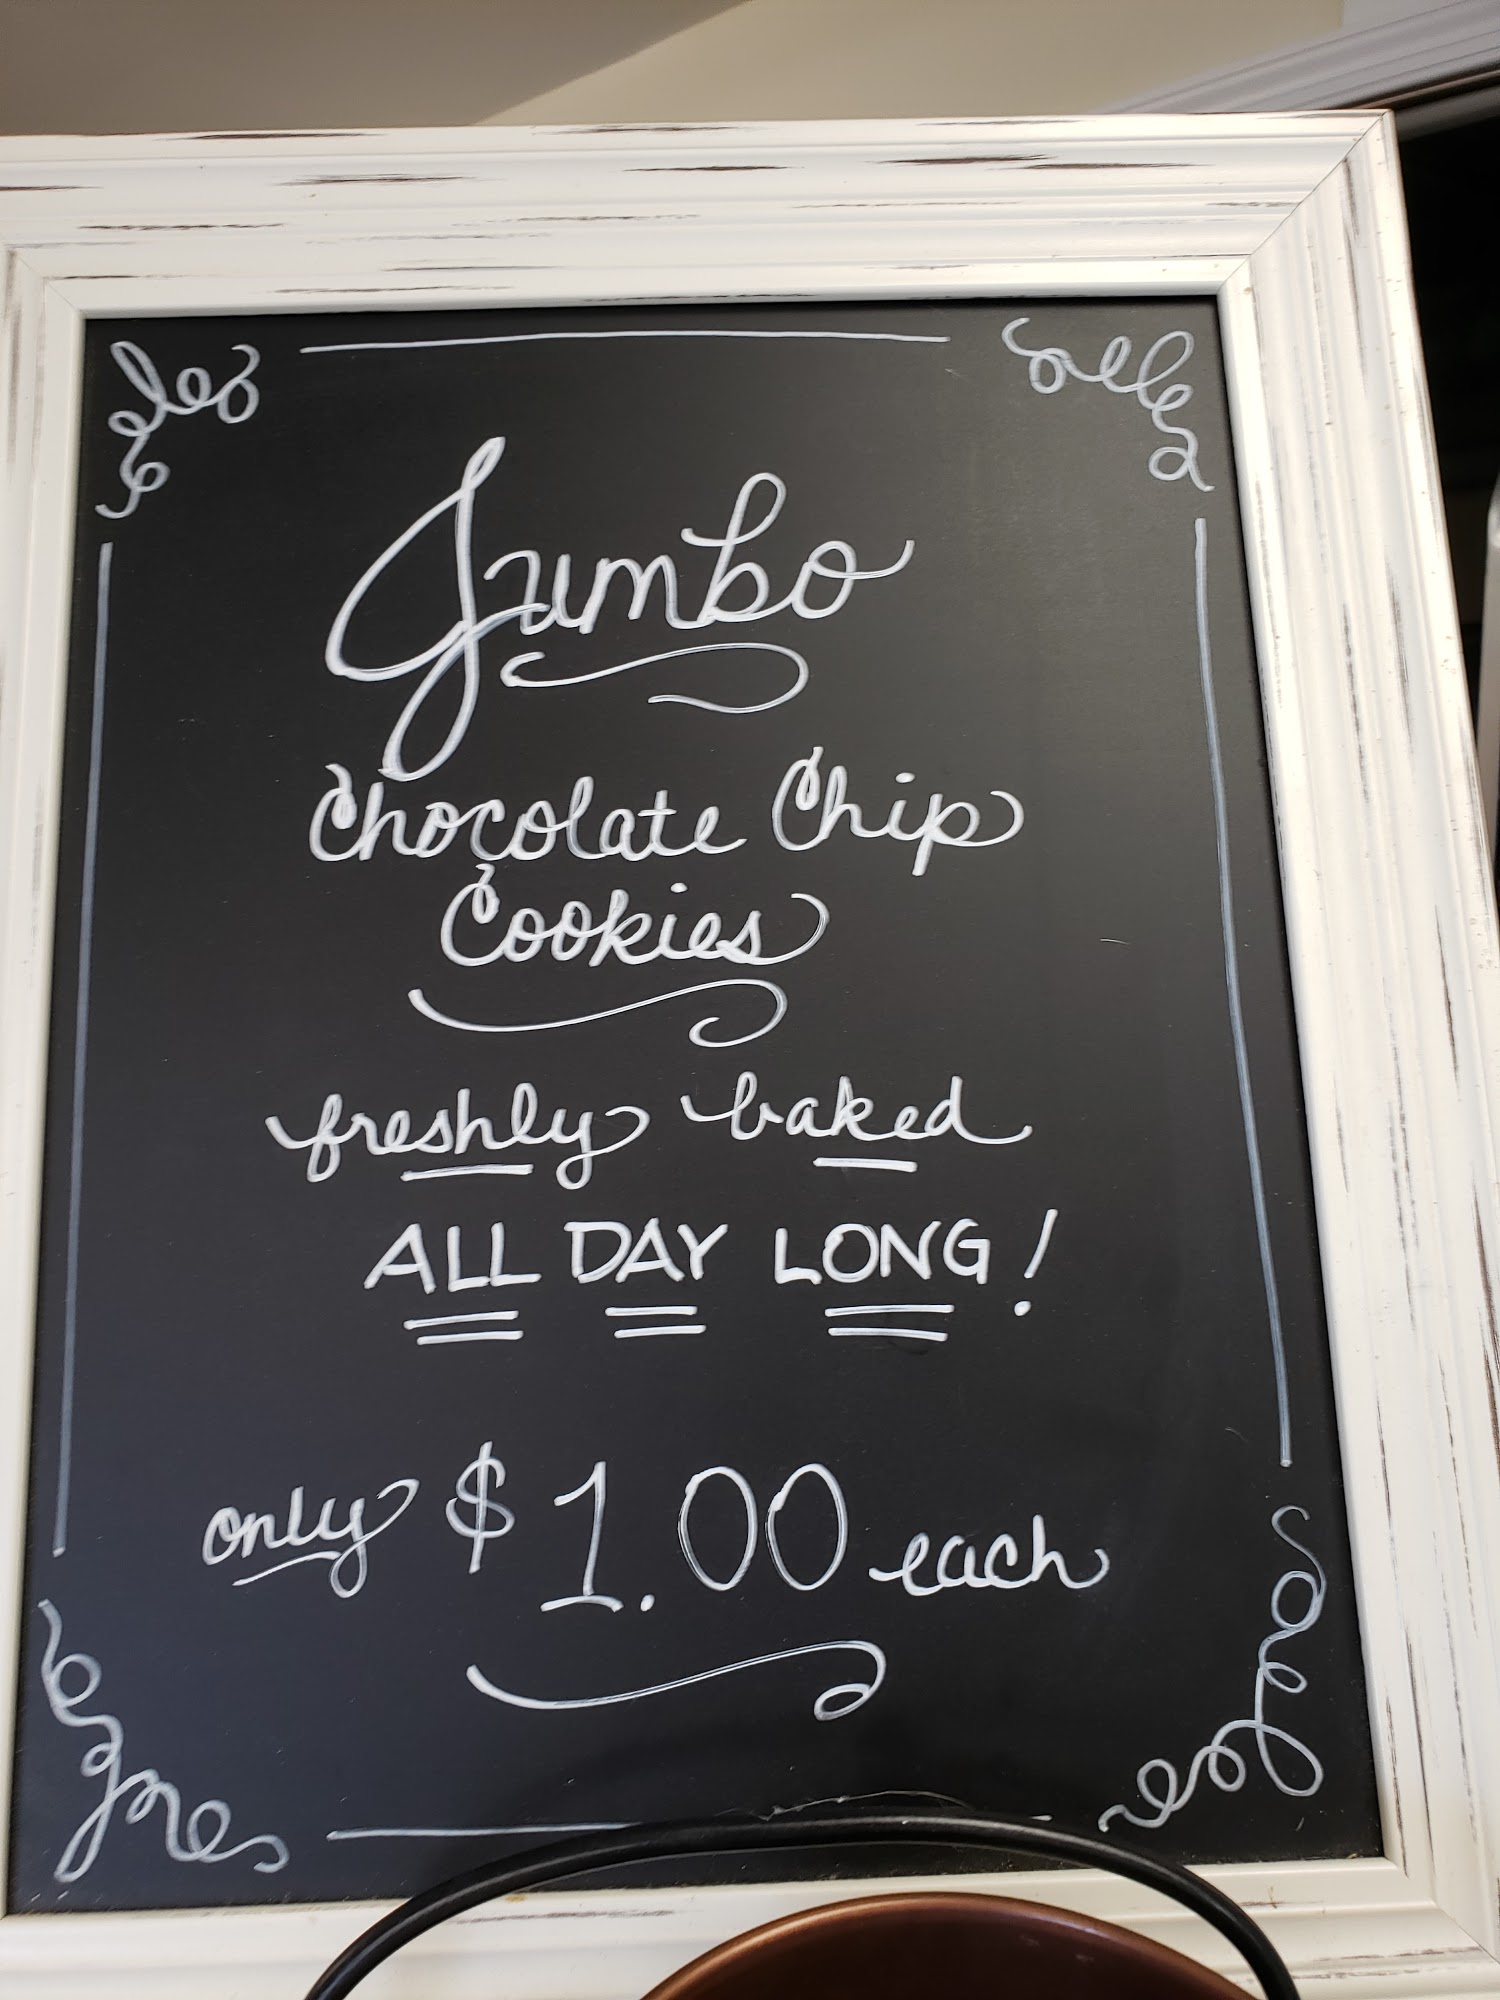 Jumbo
Chocolate Chip
Cookies
freshly baked
ALL DAY LONG!
only $1.00 each